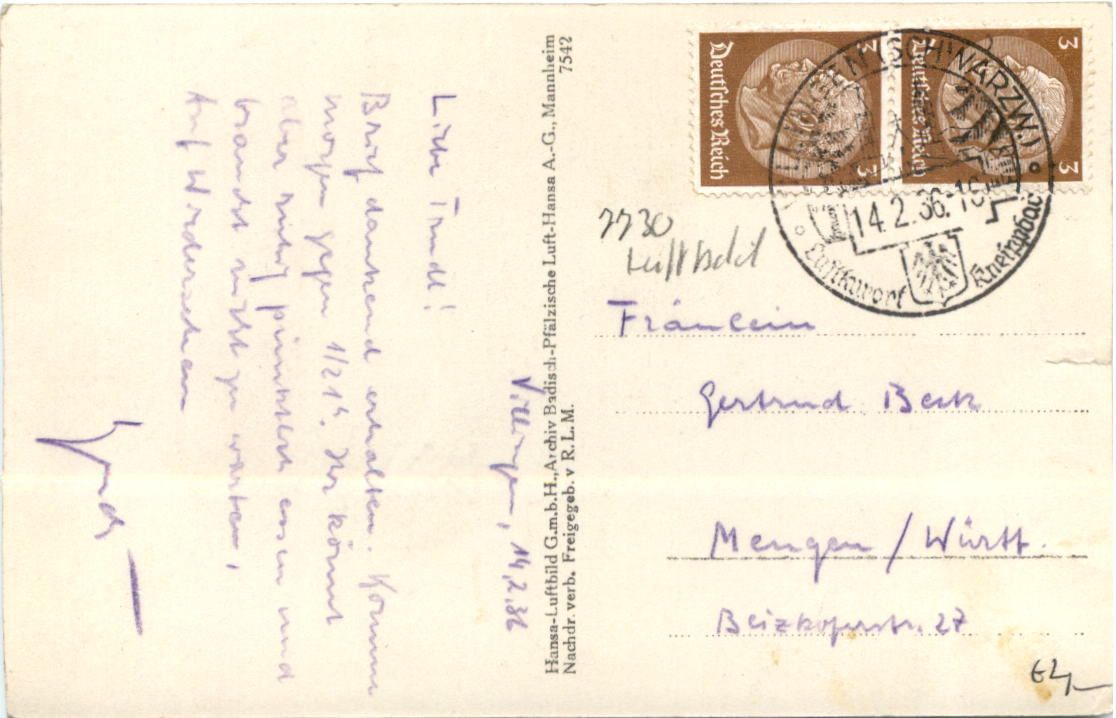 Villingen, 14.2.36
Liebe Trudl!
Brief dankend erhalten. Komme
morgen gegen 1/2 1h. Ihr könnt
aber ruhig pünktlich essen und
braucht nicht zu warten,
Auf Wiedersehen
Hansa-Luftbild G.m.b.H., Archiv Badisch-Pfälzische Luft-Hansa A.-G., Mannheim
Nachdr. verb. Freigegeb. v R.L.M. 7542
3 Deutsches Reich 3
3 Deutsches Reich 3
VILLINGEN (SCHWARZW.)
14.2.36.
Luftkurort Kneippbad
7730
Luftbild
Fräulein
Gertrud Beck
Mengen / Württ.
Beizkoferstr. 27